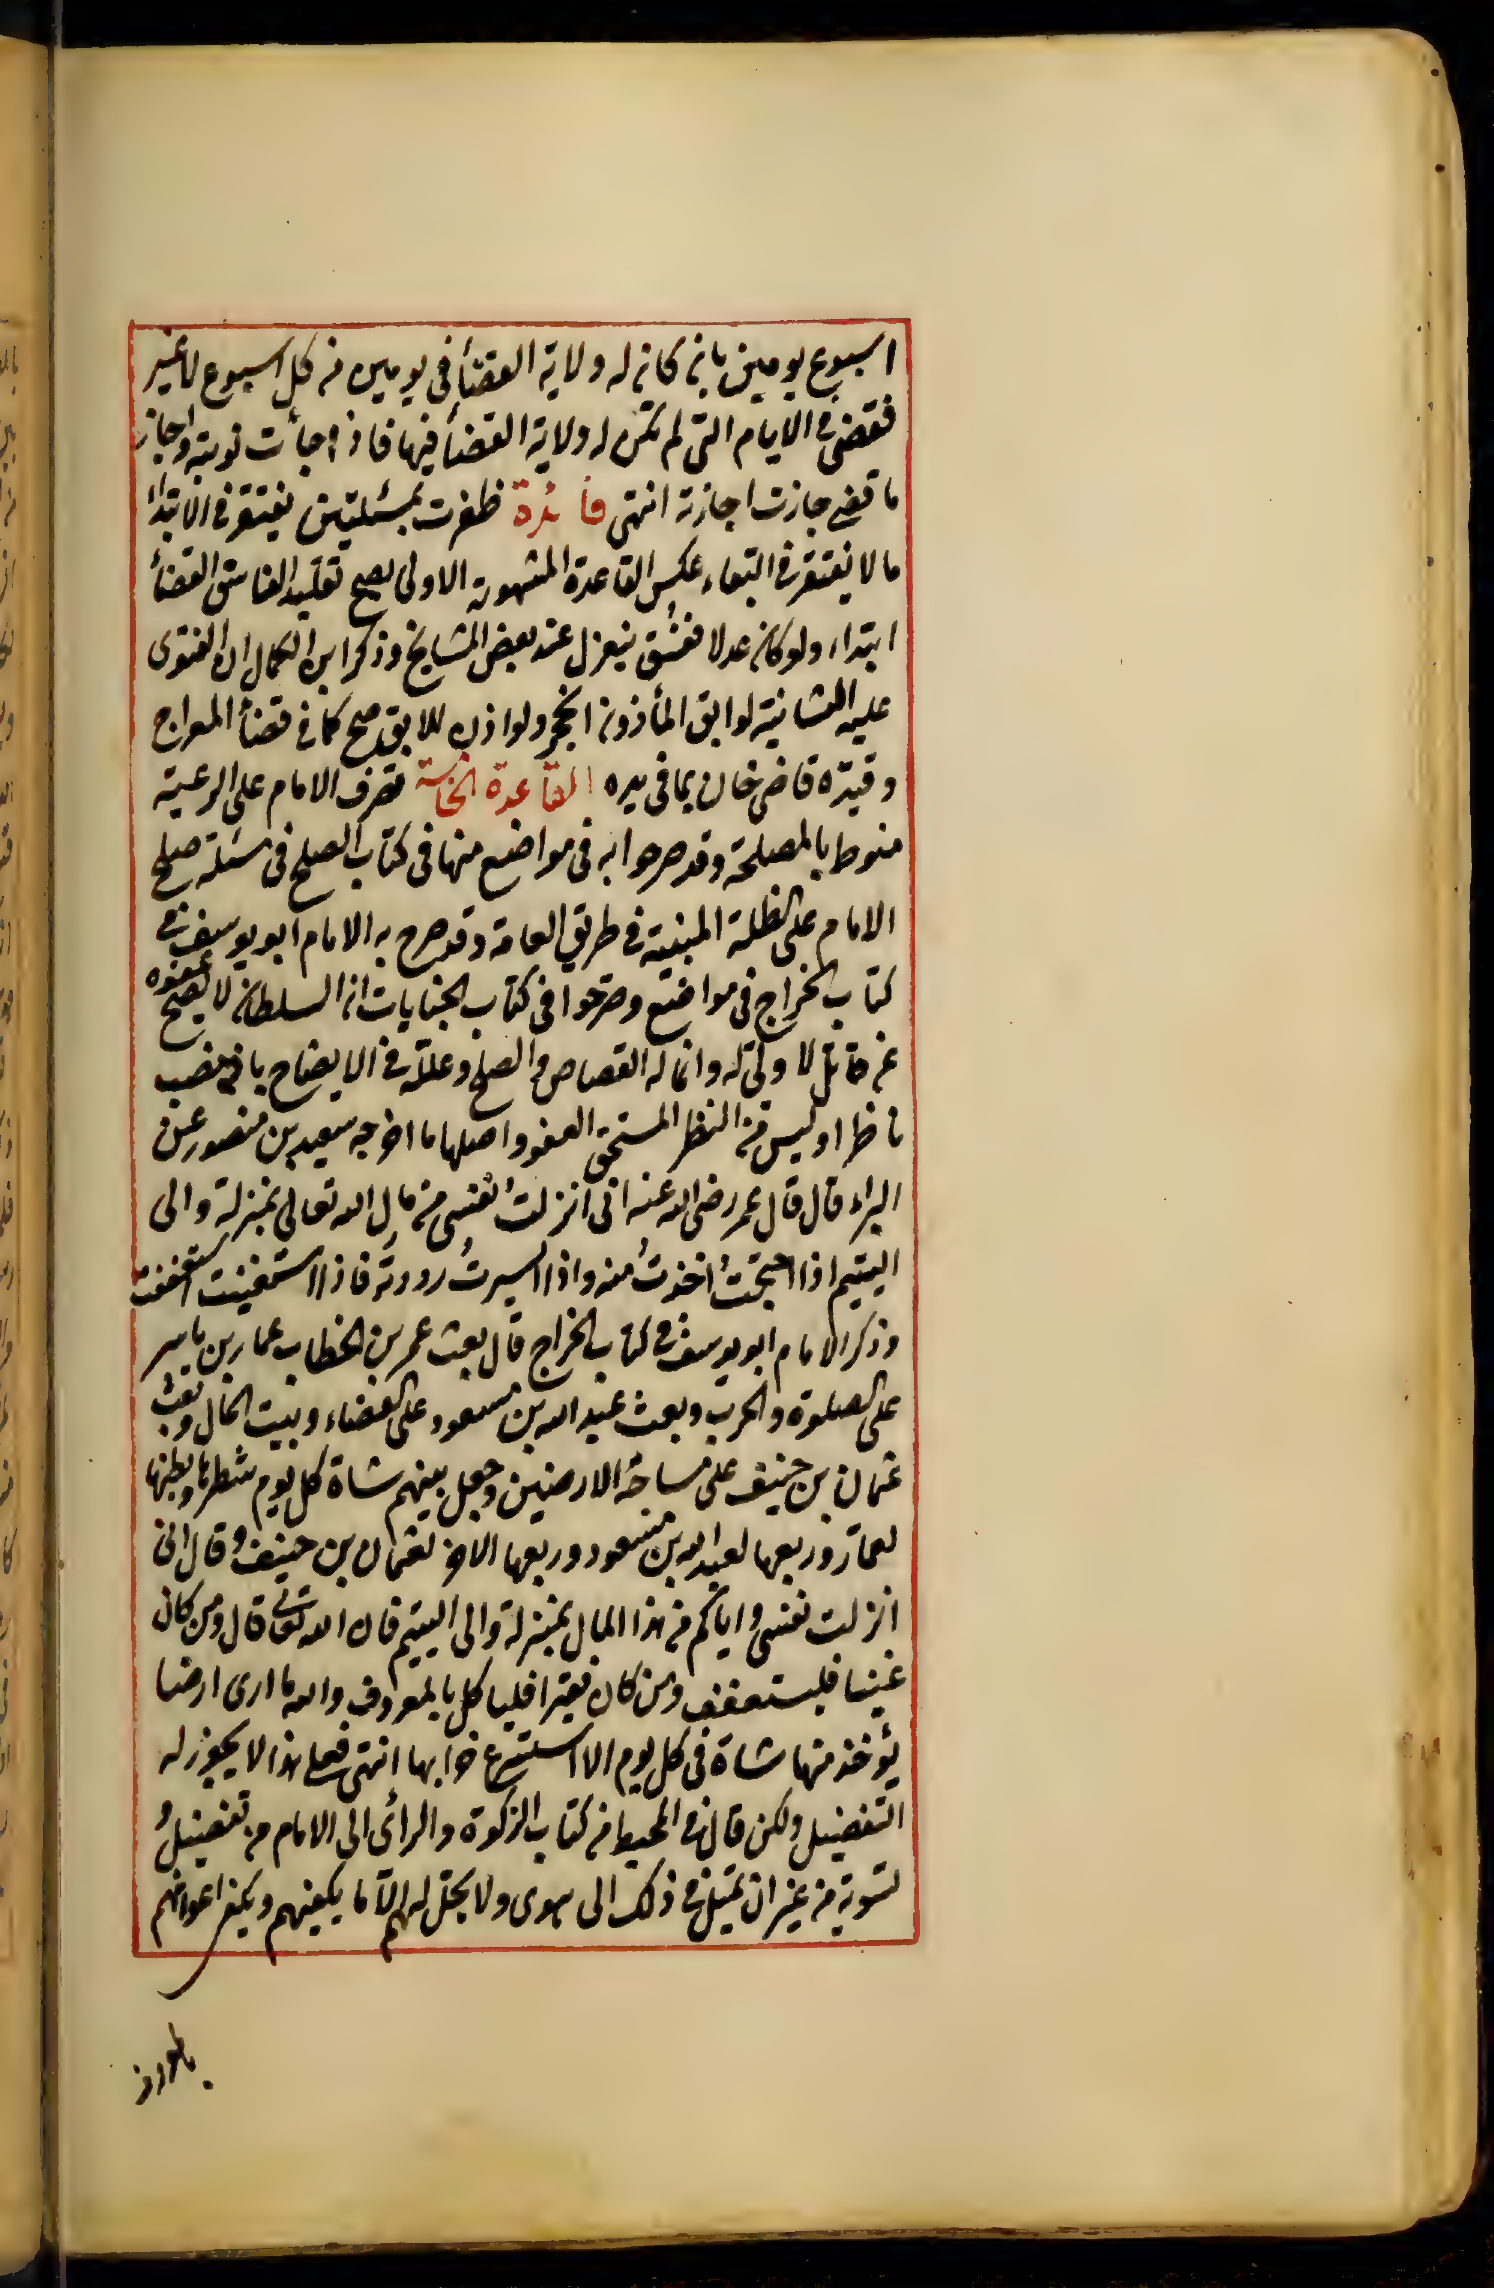 اسبوع يومين بان كان له ولاية القضأ فى يومين من كل اسبوع لا غير
فقضى فى الايام التى لم تكن له ولاية القضأ فيها فاذا جأت نوبته واجاز
ما قضى جازت اجازته انتهى فائدة ظفرت بمسئلتين يغتفر فى الابتدأ
ما لا يغتفر فى البقاء عكس القاعدة المشهورة الاولى يصح تقليد الفاسق القضأ
ابتداء ولو كان عدلا ففسق ينعزل عند بعض المشايخ وذكر ابن الكمال ان الفتوى
عليه الثانية لو ابق المأذون انحجر ولو اذن للابق صح كما فى قضأ المعراج
وقيّده قاضى خان بما فى يده القاعدة الخامسة تصرف الامام على الرعية
منوط بالمصلحة وقد صرحوا به فى مواضع منها فى كتاب الصلح فى مسئلة صلح
الامام على الظلة المبنية فى طريق العامة وقد صرح به الامام ابو يوسف فى
كتاب الخراج فى مواضع وصرّحوا فى كتاب الجنايات ان السلطان لا يصح عفوه
عن قاتل لا ولىّ له وانما له القصاص والصلح وعلله فى الايضاح بانه نصب
ناظرا وليس من النظر المستحق العفو واصلها ما اخرجه سعيد بن منصور عن
البراء قال قال عمر رضى الله عنه انى انزلتُ نفسى من مال الله تعالى بمنزلة والى
اليتيم اذا احتجتُ اخذتُ منه واذا ايسرتُ رددته فاذا استغنيت استعففت
وذكر الامام ابو يوسف فى كتاب الخراج قال بعث عمر بن الخطاب عمار بن ياسر
على الصلوة والحرب وبعث عبد الله بن مسعود على القضاء وبيت المال وبعث
عثمان بن حنيف على مساحة الارضين وجعل بينهم شاة كل يوم شطرها وبطنها
لعمار وربعها لعبد الله بن مسعود وربعها الاخر لعثمان بن حنيف وقال انى
انزلت نفسى واياكم من هذا المال بمنزلة والى اليتيم فان الله تعالى قال ومن كان
غنيا فليستعفف ومن كان فقيرا فلياكل بالمعروف والله ما ارى ارضا
يؤخذ منها شاة فى كل يوم الا استسرع خرابها انتهى فعلى هذا لا يجوز له
التفضيل ولكن قال فى المحيط من كتاب الزكوة والرأى الى الامام من تفضيل و
تسوية من غير ان يميل فى ذلك الى هوى ولا يحل لهم الّا ما يكفيهم ويكفى اعوانهم